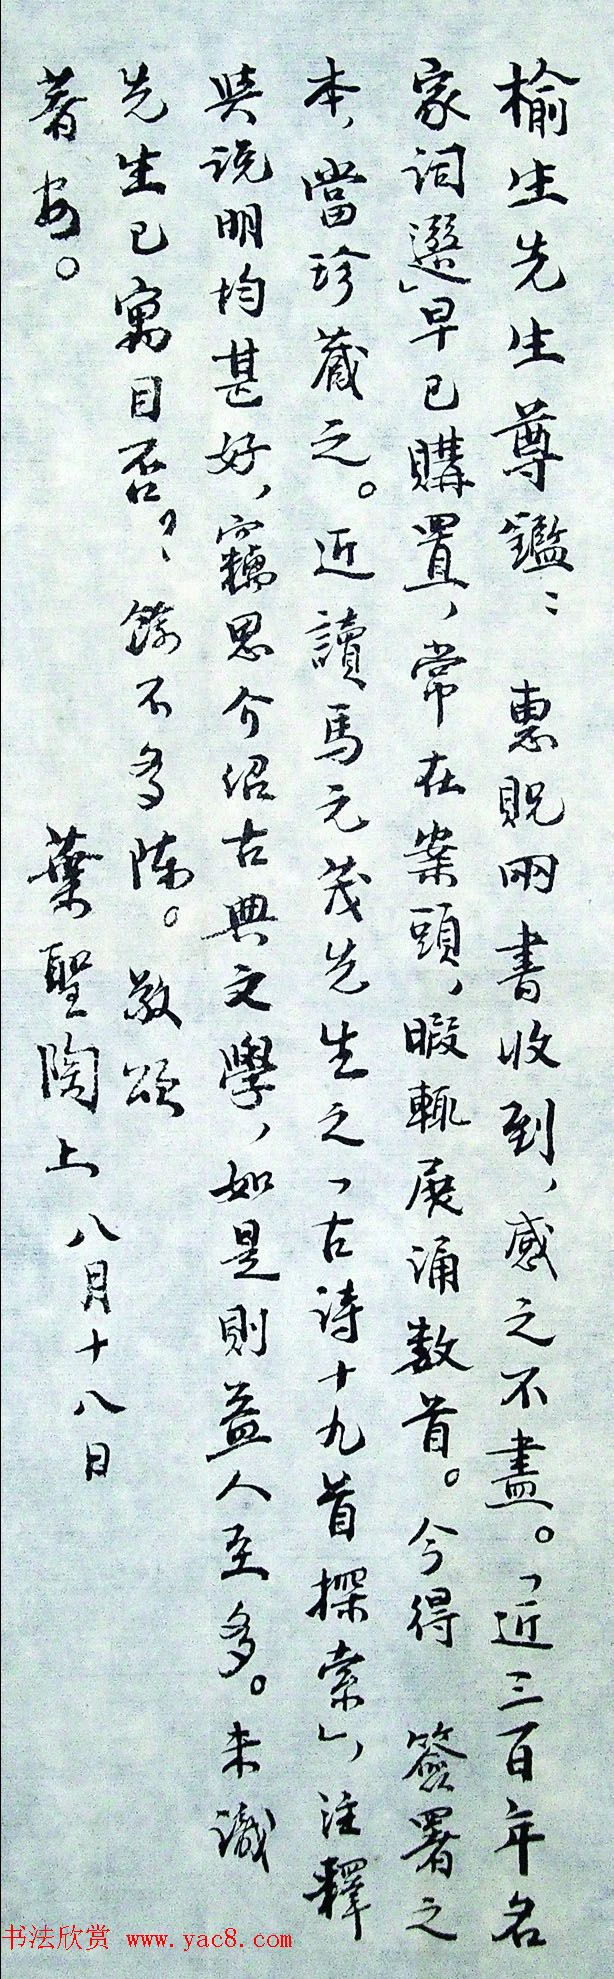 榆生先生尊鑑： 惠貺兩書收到，感之不盡。「近三百年名
家詞選」早已購置，常在案頭，暇輒展誦数首。今得 簽署之
本，當珍藏之。近讀馬元茂先生之「古诗十九首探索」，注釋
與说明均甚好，竊思介绍古典文學，如是則益人至多。未識
先生已寓目否？餘不多陳。敬頌
著安。
葉聖陶上 八月十八日
书法欣赏 www.yac8.com